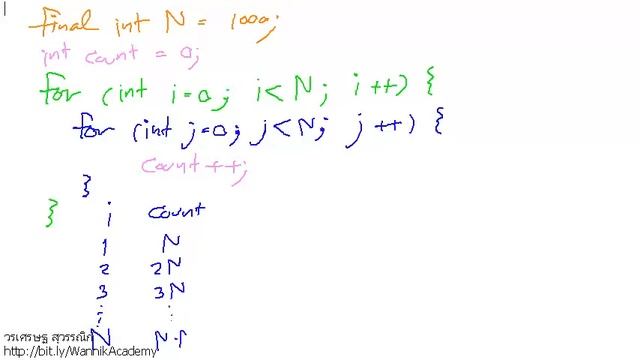 final int N = 1000;
int count = 0;
for (int i=0; i<N; i++) {
for (int j=0; j<N; j++) {
count++;
}
}
i count
1 N
2 2N
3 3N
⋮ ⋮
N N·
วรเศรษฐ สุวรรณิก
http://bit.ly/WannikAcademy